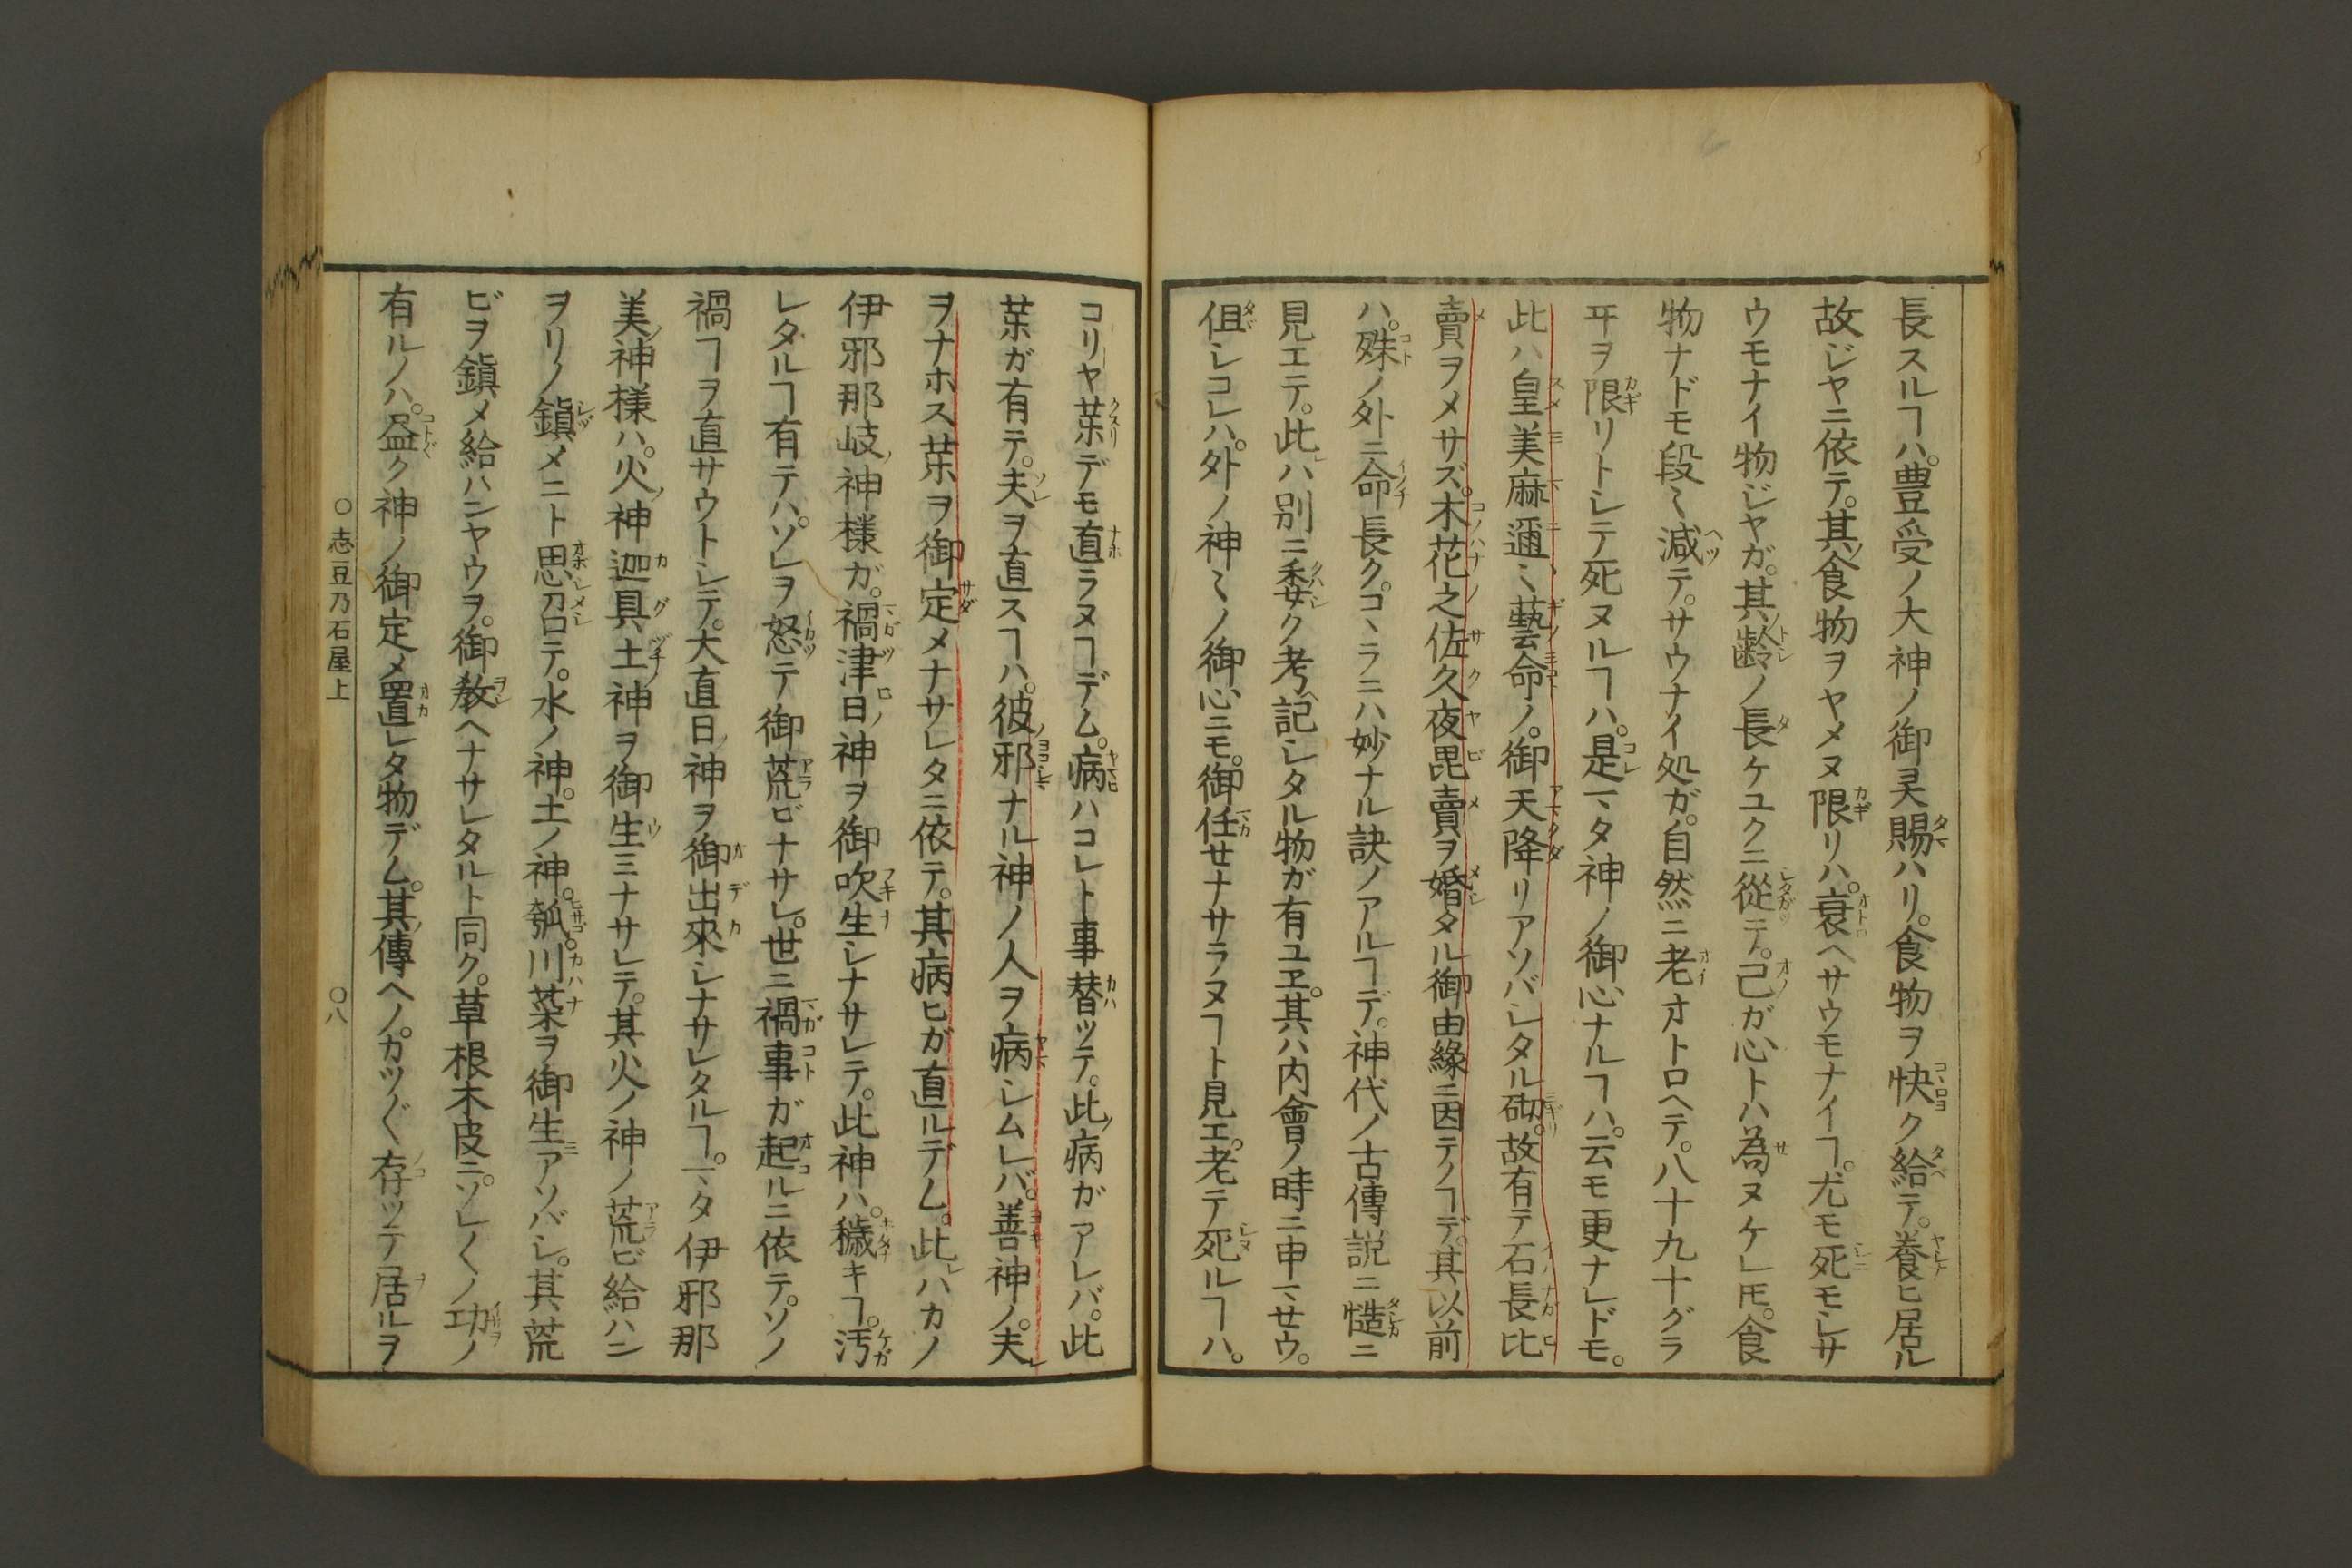 長スルヿハ。豊受ノ大神ノ御灵賜ハリ。食物ヲ快ク給テ。養ヒ居ル
故ジヤニ依テ。其食物ヲヤメヌ限リハ。衰ヘサウモナイヿ。尤モ死モシサ
ウモナイ物ジヤガ。其齢ノ長ケユクニ從テ。己ガ心トハ為ヌケレ𪜈。食
物ナドモ段〻減テ。サウナイ処ガ。自然ニ老オトロヘテ。八十九十グラ
ヰヲ限リトシテ死ヌルヿハ。是マタ神ノ御心ナルヿハ。云モ更ナレドモ。
此ハ皇美麻邇〻藝命ノ。御天降リアソバシタル砌。故有テ石長比
賣ヲメサズ。木花之佐久夜毘賣ヲ婚タル御由緣ニ因テノヿデ。其以前
ハ。殊ノ外ニ命長ク。コヽラニハ妙ナル訣ノアルヿデ。神代ノ古傳説ニ慥ニ
見エテ。此ハ別ニ委ク考記シタル物ガ有ユヱ。其ハ内會ノ時ニ申マセウ。
但シコレハ。外ノ神〻ノ御心ニモ。御任セナサラヌヿト見エ。老テ死ルヿハ。
コリヤ藥デモ直ラヌヿデム。病ハコレト事替ツテ。此病ガアレバ。此
藥ガ有テ。夫ヲ直スヿハ。彼邪ナル神ノ人ヲ病シムレバ。善神ノ。夫
ヲナホス藥ヲ御定メナサレタニ依テ。其病ヒガ直ルデム。此ハカノ
伊邪那岐神様ガ。禍津日神ヲ御吹生シナサレテ。此神ハ。穢キヿ。汚
レタルヿ有テハ。ソレヲ怒テ御荒ビナサレ。世ニ禍事ガ起ルニ依テ。ソノ
禍ヿヲ直サウトシテ。大直日神ヲ御出來シナサレタルヿ。マタ伊邪那
美神様ハ。火ノ神迦具土神ヲ御生ミナサレテ。其火ノ神ノ荒ビ給ハン
ヲリノ鎮メニト思召テ。水ノ神。土ノ神。瓠。川菜ヲ御生アソバシ。其荒
ビヲ鎮メ給ハンヤウヲ。御敎ヘナサレタルト同ク。草根木皮ニ。ソレ〳〵ノ功ノ
有ルノハ。盡ク神ノ御定メ置レタ物デム。其傳ヘノ。カツ〴〵存ツテ居ルヲ
○志豆乃石屋上
○八